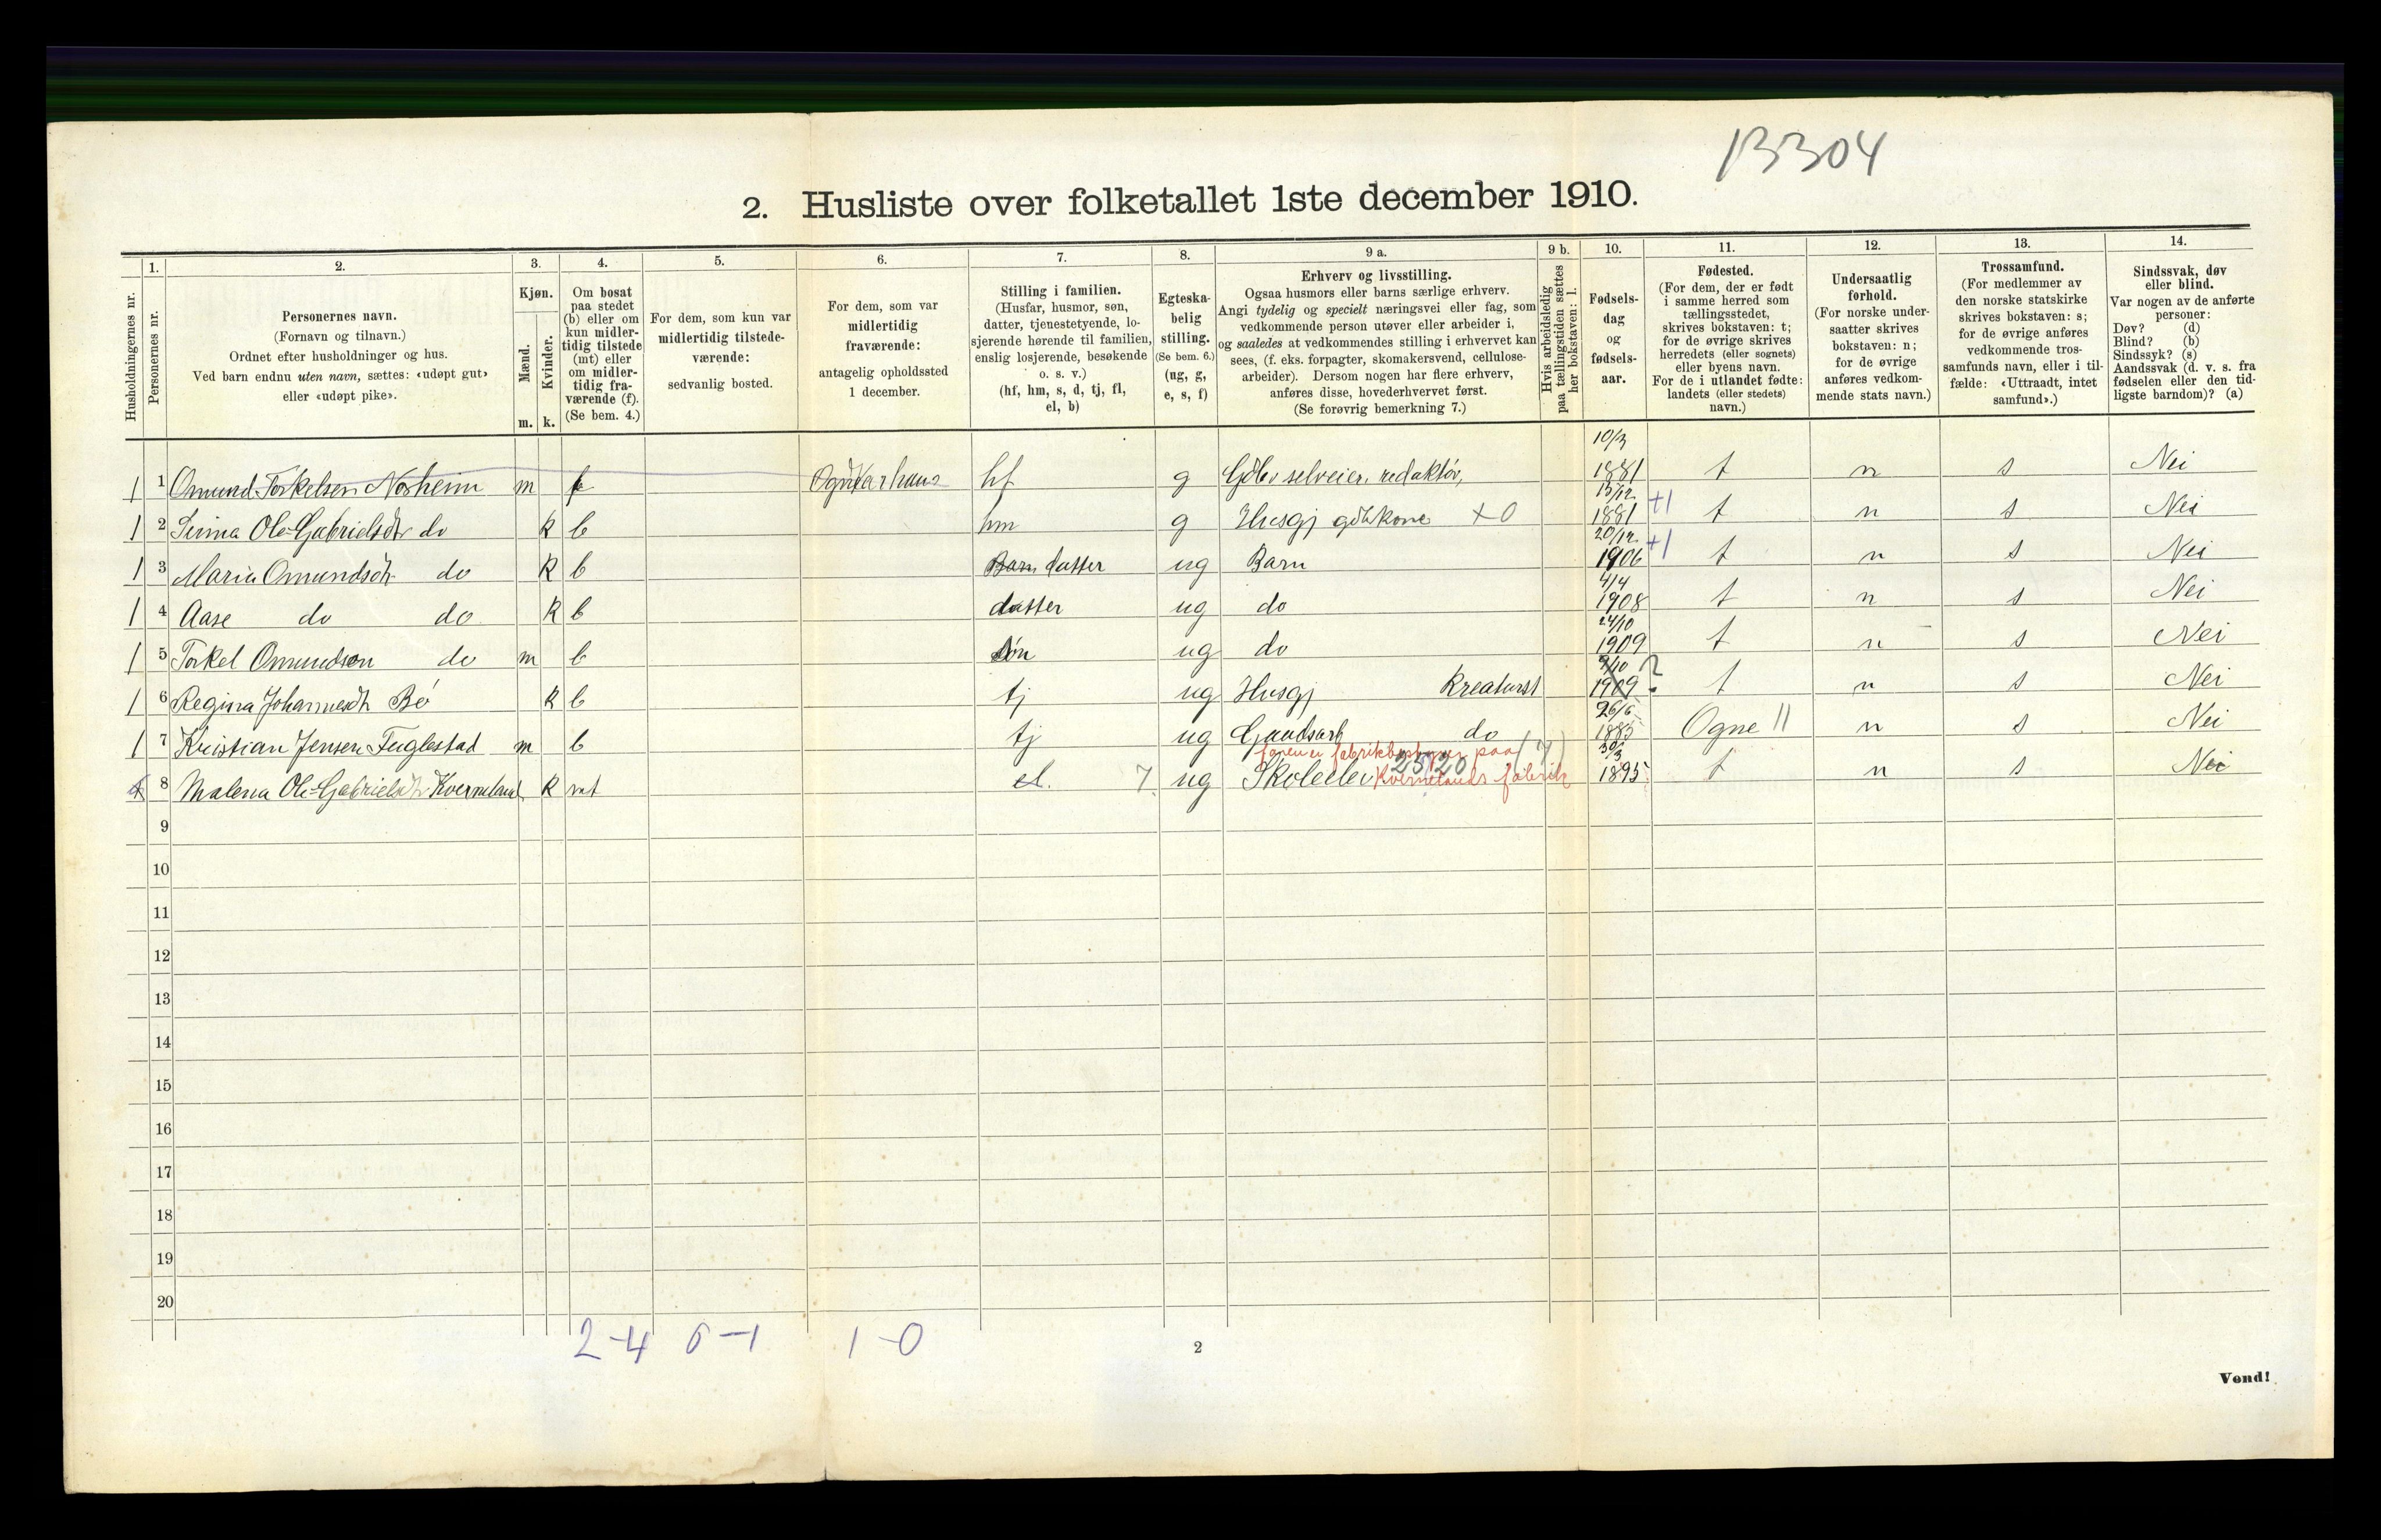 13304
2. Husliste over folketallet 1ste december 1910.
Husholdningernes nr.
1.
Personernes nr.
2.
Personernes navn.
(Fornavn og tilnavn.)
Ordnet efter husholdninger og hus.
Ved barn endnu uten navn, sættes: «udøpt gut»
eller «udøpt pike».
3.
Kjøn.
Mænd.
Kvinder.
m. k.
4.
Om bosat
paa stedet
(b) eller om
kun midler-
tidig tilstede
(mt) eller
om midler-
tidig fra-
værende (f).
(Se bem. 4.)
5.
For dem, som kun var
midlertidig tilstede-
værende:
sedvanlig bosted.
6.
For dem, som var
midlertidig
fraværende:
antagelig opholdssted
1 december.
7.
Stilling i familien.
(Husfar, husmor, søn,
datter, tjenestetyende, lo-
sjerende hørende til familien,
enslig losjerende, besøkende
o. s. v.)
(hf, hm, s, d, tj, fl,
el, b)
8.
Egteska-
belig
stilling.
(Se bem. 6.)
(ug, g,
e, s, f)
9 a.
Erhverv og livsstilling.
Ogsaa husmors eller barns særlige erhverv.
Angi tydelig og specielt næringsvei eller fag, som
vedkommende person utøver eller arbeider i,
og saaledes at vedkommendes stilling i erhvervet kan
sees, (f. eks. forpagter, skomakersvend, cellulose-
arbeider). Dersom nogen har flere erhverv,
anføres disse, hovederhvervet først.
(Se forøvrig bemerkning 7.)
9 b.
Hvis arbeidsledig
paa tællingstiden sættes
her bokstaven: l.
10.
Fødsels-
dag
og
fødsels-
aar.
11.
Fødested.
(For dem, der er født
i samme herred som
tællingsstedet,
skrives bokstaven: t;
for de øvrige skrives
herredets (eller sognets)
eller byens navn.
For de i utlandet fødte:
landets (eller stedets)
navn.)
12.
Undersaatlig
forhold.
(For norske under-
saatter skrives
bokstaven: n;
for de øvrige
anføres vedkom-
mende stats navn.)
13.
Trossamfund.
(For medlemmer av
den norske statskirke
skrives bokstaven: s;
for de øvrige anføres
vedkommende tros-
samfunds navn, eller i til-
fælde: «Uttraadt, intet
samfund».)
14.
Sindssvak, døv
eller blind.
Var nogen av de anførte
personer:
Døv? (d)
Blind? (b)
Sindssyk? (s)
Aandssvak (d. v. s. fra
fødselen eller den tid-
ligste barndom)? (a)
1 1 Omund Torkelsen Norheim m f hf g Gdbr selveier, redaktør, 10/3 1881 t n s Nei
1 2 Serina Ole-Gabrielsdtr do k b hm g Husgj gdbkone +0 13/12 1881 +1 t n s Nei
1 3 Maria Omundsdtr do k b Barn datter ug Barn 20/12 1906 +1 t n s Nei
1 4 Aase do do k b datter ug do 4/4 1908 t n s Nei
1 5 Torkel Omundson do m b søn ug do 24/10 1909 t n s Nei
1 6 Regina Johannesdtr Bø k b tj ug Husgj Kreaturst 9/10 1909 ? t n s Nei
1 7 Kristian Jensen Fuglestad m b tj ug Gaardsarb do 26/6 1885 Ogne 11 n s Nei
faren er fabrikbestyrer paa (7)
8 Malena Ole-Gabrielsdtr Kverneland k mt el. 7 ug Skoleelev Kvernelands fabrik 30/3 1895 t n s Nei
9
10
11
12
13
14
15
16
17
18
19
20
2-4 0-1 1-0
2
Vend!